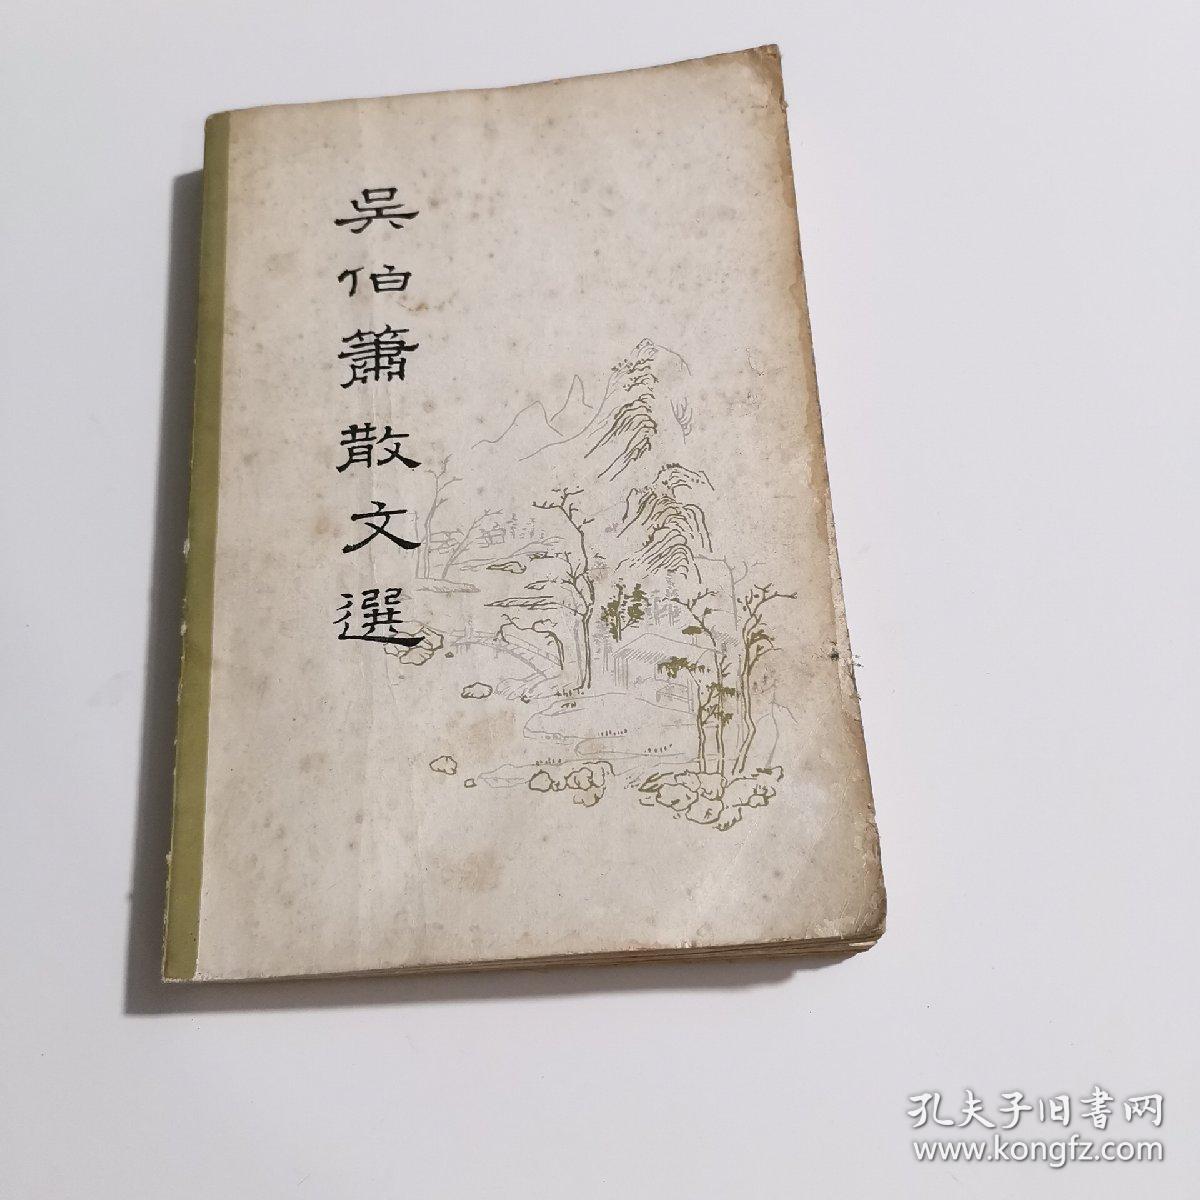 吳伯簫散文選
孔夫子旧书网
www.kongfz.com